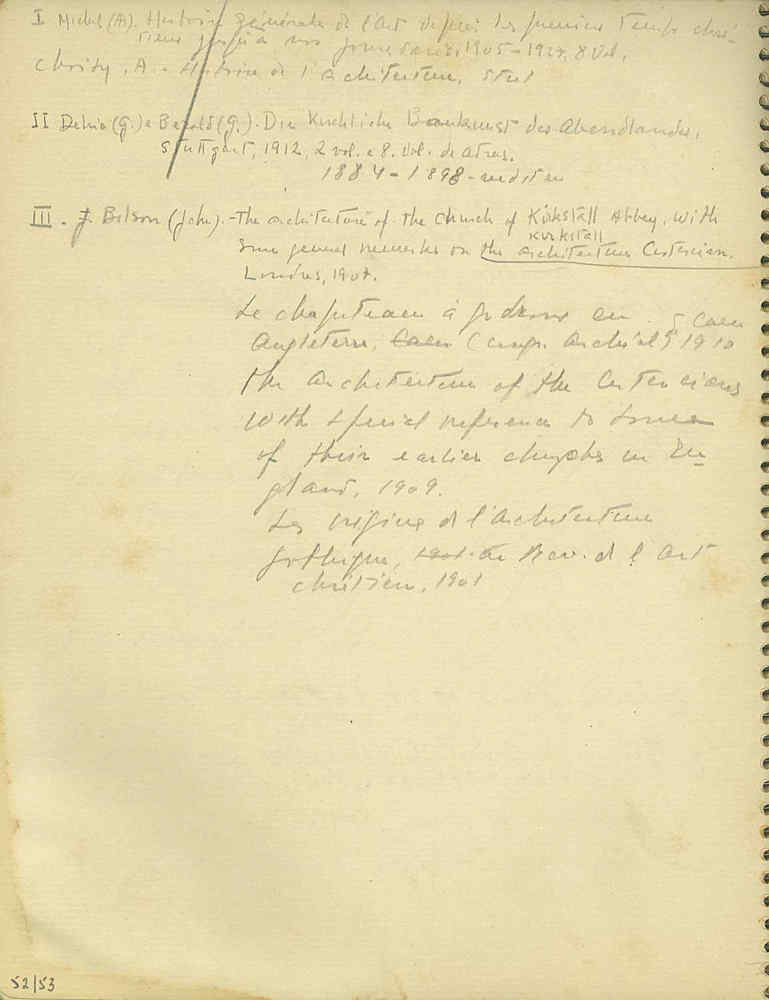 I Michel (A). Histoire générale de l'art depuis les premiers temps chré-
tiens jusqu'à nos jours Paris, 1905-1929, 8 Vol.
Choisy, A. - Histoire de l'architecture,
II Dehio (G.) e Bezold (G.). Die Kirchliche Baukunst des Abendlandes,
Stuttgart, 1912, 2 vol. e 8. vol. de atlas.
1884-1898
III. J. Bilson (John). - The architecture of the church of Kirkstall Abbey, with
Kirkstall
some general remarks on the architecture Cistercian.
Londres, 1907.
Le chapiteau à godrons en Caen
Angleterre, Caen (congr. archéol) 1910
The architecture of the Cistercians
with special reference to some
of their earlier churches in En-
gland, 1909.
Les origines de l'architecture
gothique, 1901 Rev. de l'art
chrétien, 1901
52/53